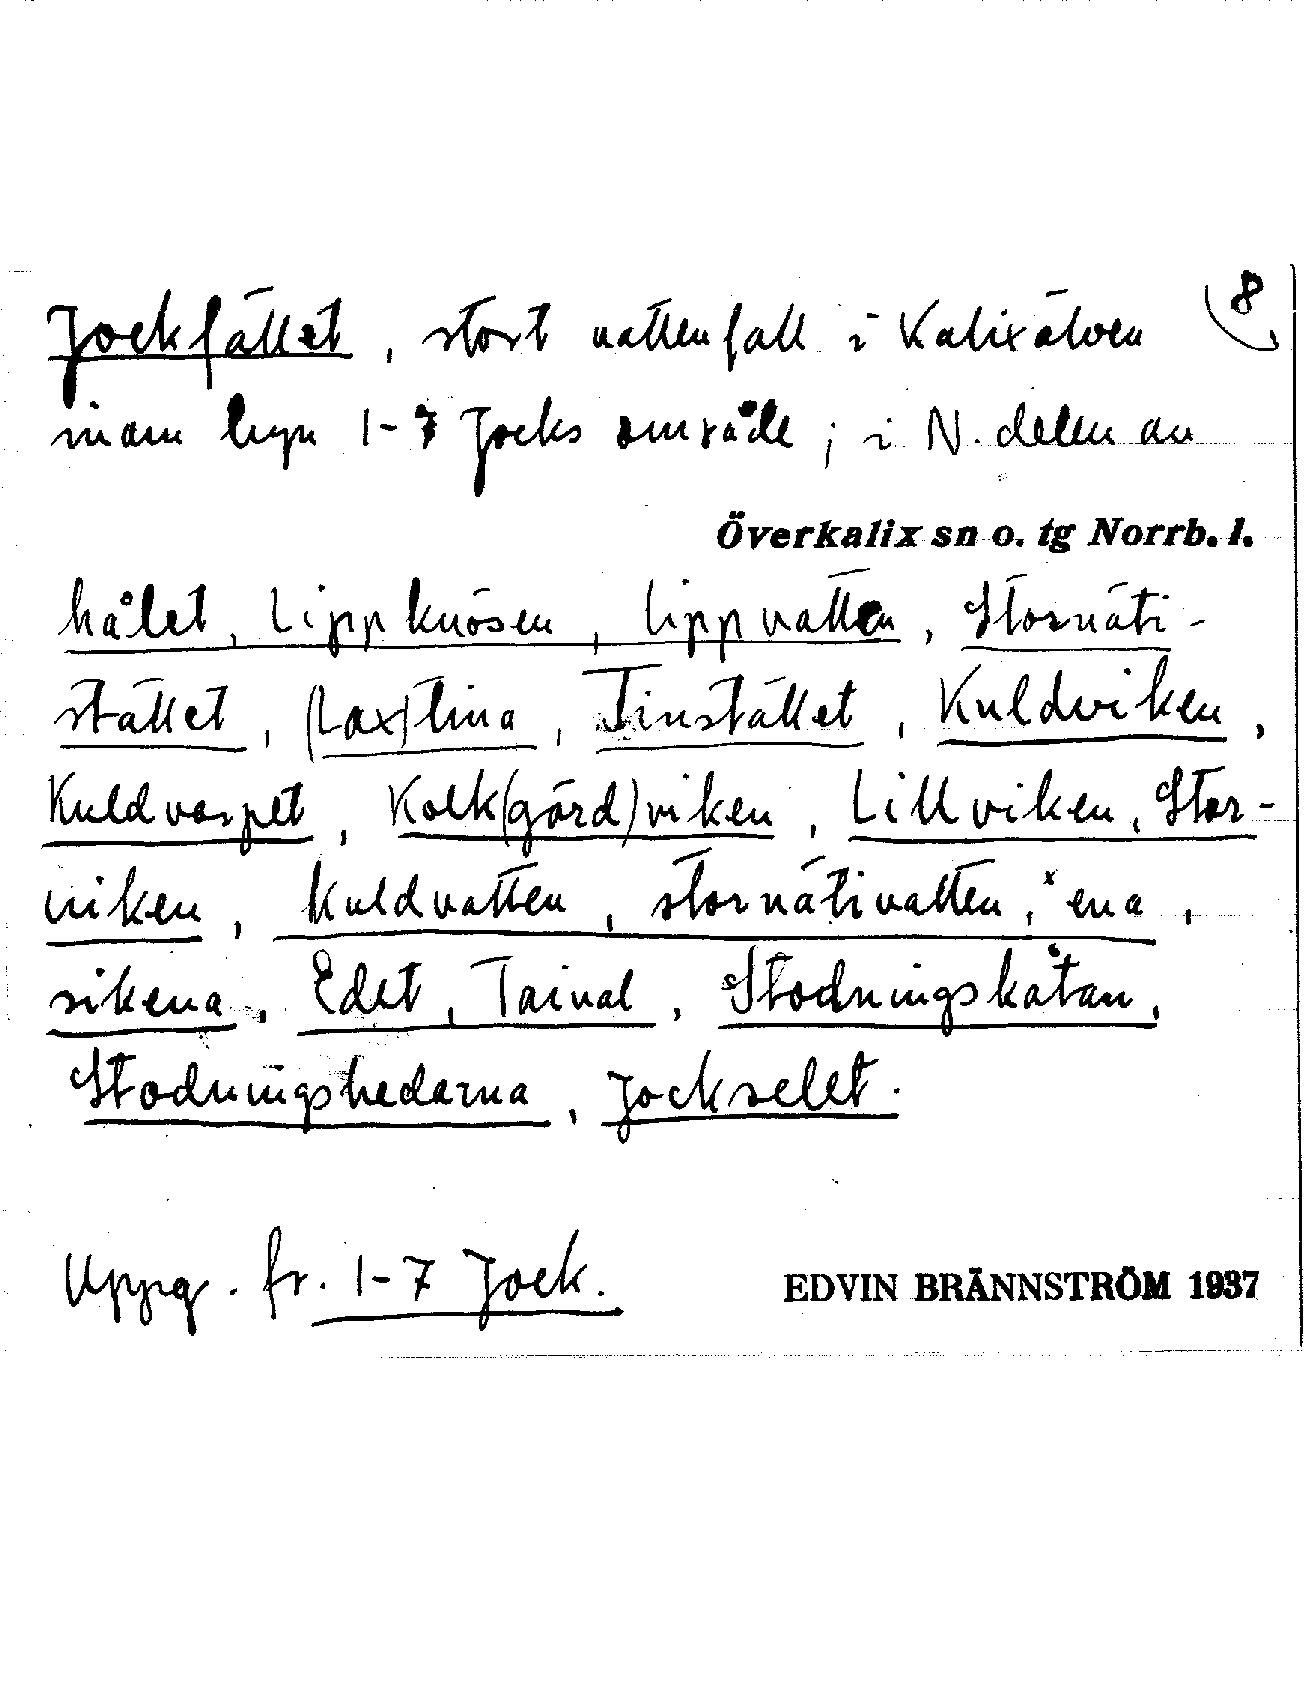 8
Jockfället, stort vattenfall i Kalixälven
inom byn 1-7 Jocks område; i N. delen av
Överkalix sn o. tg Norrb. l.
hålet, Lippknösen, Lippvatten, Stornäti-
stället, (Lax)tina, Tinstället, Kuldviken,
Kuldvarpet, Kolk(gård)viken, Lillviken, Stor-
viken, Kuldvatten, stornätivatten, ˣena,
sikena, Edet, Taival, Stodningskåtan,
Stodningshedarna, Jockselet.
Uppg. fr. 1-7 Jock.
EDVIN BRÄNNSTRÖM 1937